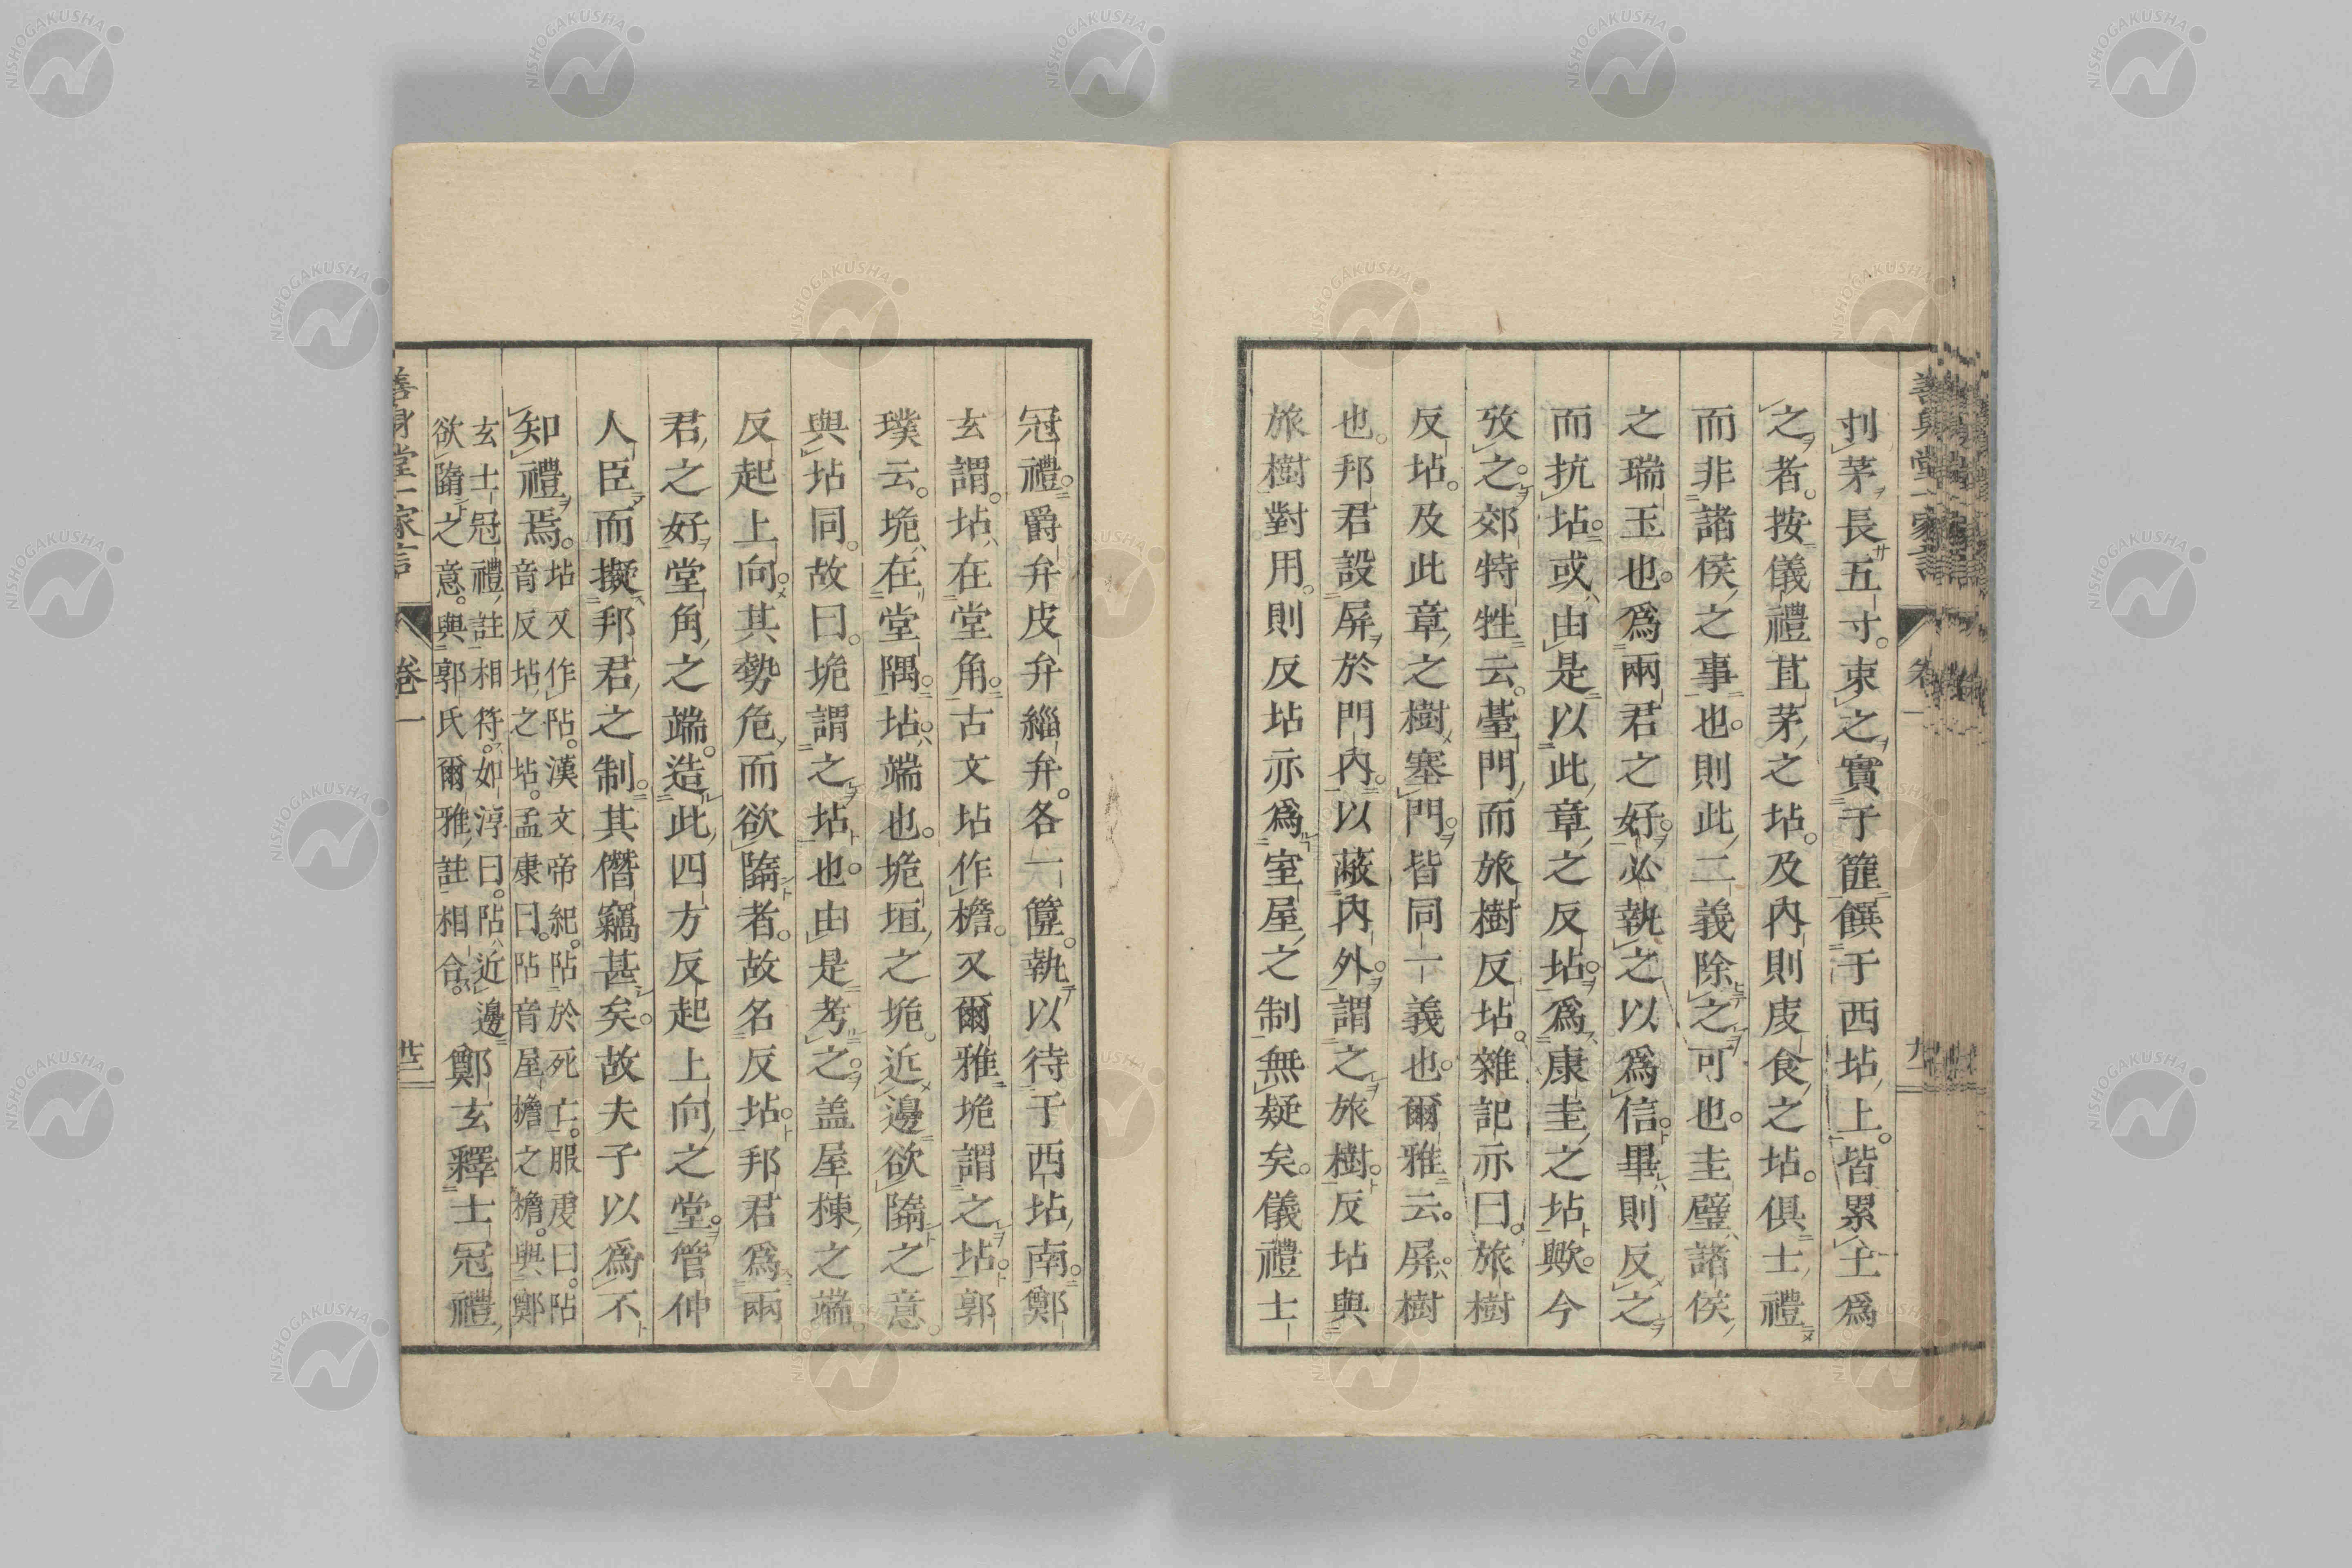 刌茅長五寸。束之實于篚饌于西坫上。皆累土爲
之者。按儀禮苴茅之坫。及內則庋食之坫。俱士禮
而非諸侯之事也。則此二義除之可也。圭璧諸侯
之瑞玉也。爲兩君之好。必執之以爲信。畢則反之
而抗坫。或由是以此章之反坫。爲康圭之坫歟。今
攷之。郊特牲云。臺門而旅樹反坫。雜記亦曰。旅樹
反坫。及此章之樹塞門。皆同一義也。爾雅云。屏。樹
也。邦君設屏於門內。以蔽內外。謂之旅樹。反坫與
旅樹對用。則反坫亦爲室屋之制無疑矣。儀禮士
冠禮。爵弁皮弁緇弁。各一篹。執以待于西坫南。鄭
玄謂。坫在堂角。古文坫作檐。又爾雅垝謂之坫。郭
璞云。垝在堂隅。坫。端也。垝垣之垝。近邊欲隤之意。
與坫同。故曰。垝謂之坫也。由是考之。盖屋棟之端
反起上向。其勢危而欲隤者。故名反坫。邦君爲兩
君之好。堂角之端。造此四方反起上向之堂。管仲
人臣而擬邦君之制。其僭竊甚矣。故夫子以爲不
知禮焉。坫又作阽。漢文帝紀。阽於死亡。服虔曰。阽
音反坫之坫。孟康曰。阽音屋檐之檐。與鄭
玄士冠禮註相符。如淳曰。阽近邊
欲隤之意。與郭氏爾雅註相合。
鄭玄釋士冠禮
善身堂一家言
卷一
NISHOGAKUSHA